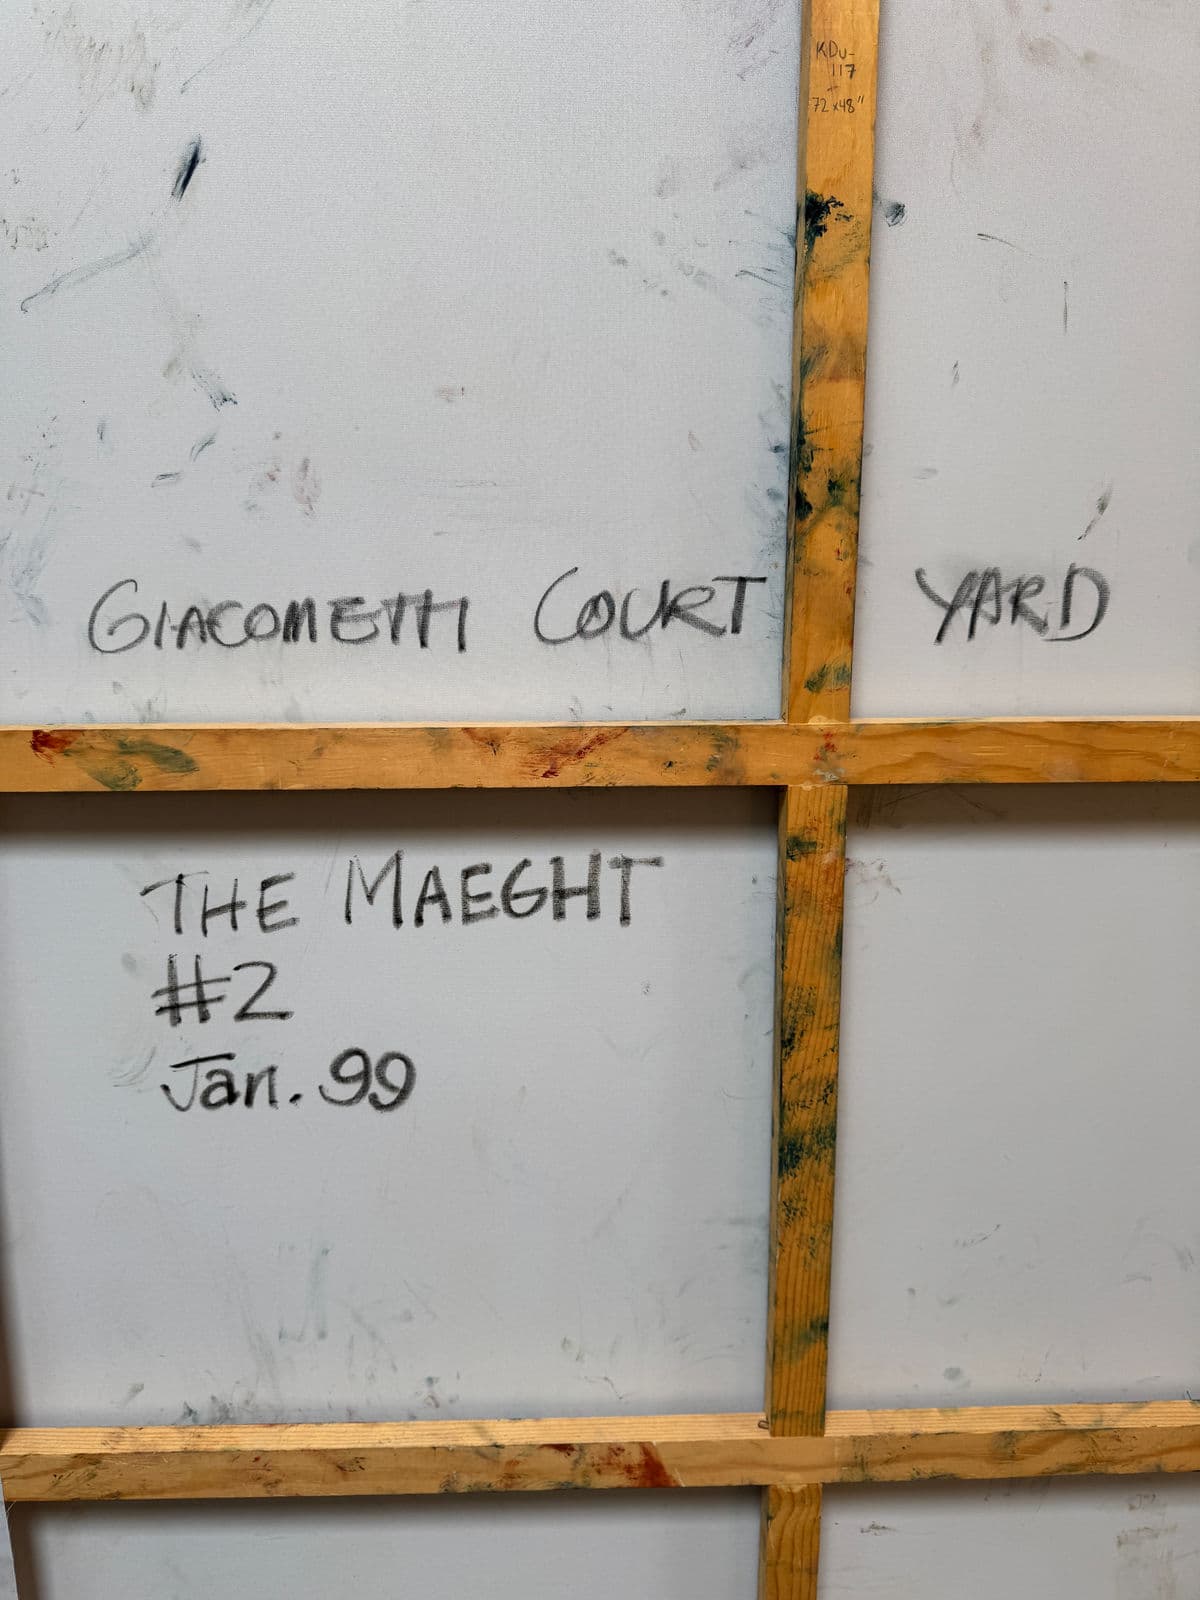 KDU-
117
72x48"
GIACOMETTI COURT YARD
THE MAEGHT
#2
Jan. 99